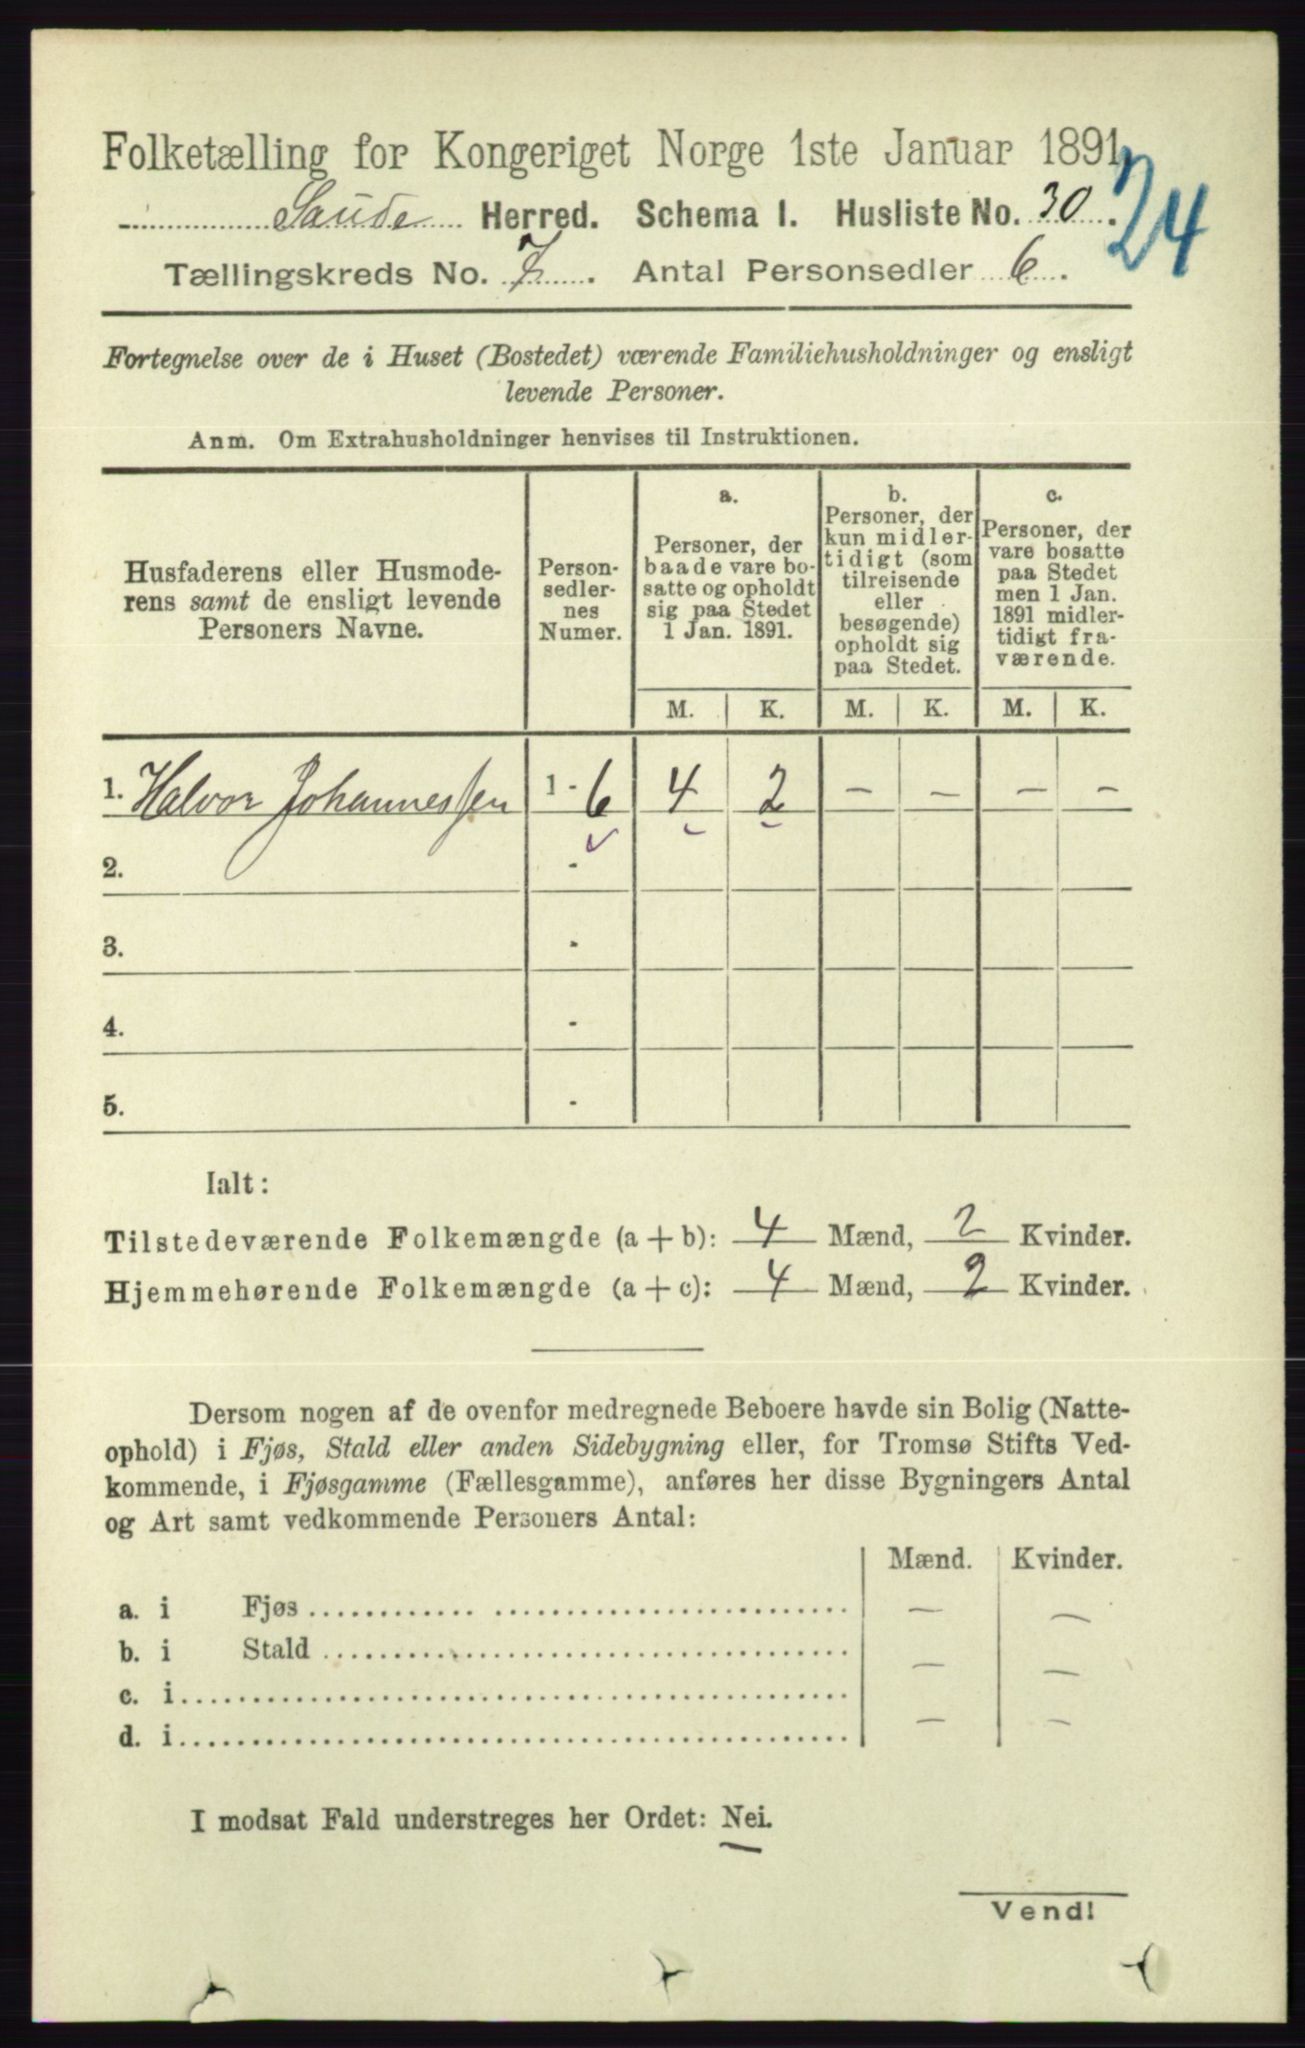 Folketælling for Kongeriget Norge 1ste Januar 1891.
Saude Herred. Schema I. Husliste No. 30.
24
Tællingskreds No. 7. Antal Personsedler 6.
Fortegnelse over de i Huset (Bostedet) værende Familiehusholdninger og ensligt
levende Personer.
Anm. Om Extrahusholdninger henvises til Instruktionen.
Husfaderens eller Husmode-
rens samt de ensligt levende
Personers Navne.
Person-
sedler-
nes
Numer.
a.
Personer, der
baade vare bo-
satte og opholdt
sig paa Stedet
1 Jan. 1891.
b.
Personer, der
kun midler-
tidigt (som
tilreisende
eller
besøgende)
opholdt sig
paa Stedet.
c.
Personer, der
vare bosatte
paa Stedet
men 1 Jan.
1891 midler-
tidigt fra-
værende.
M. K. M. K. M. K.
1. Halvor Johannessen 1 - 6 4 2 — — — —
2. -
3. -
4. -
5. -
Ialt:
Tilstedeværende Folkemængde (a + b): 4 Mænd, 2 Kvinder.
Hjemmehørende Folkemængde (a + c): 4 Mænd, 2 Kvinder.
Dersom nogen af de ovenfor medregnede Beboere havde sin Bolig (Natte-
ophold) i Fjøs, Stald eller anden Sidebygning eller, for Tromsø Stifts Ved-
kommende, i Fjøsgamme (Fællesgamme), anføres her disse Bygningers Antal
og Art samt vedkommende Personers Antal:
Mænd. Kvinder.
a. i Fjøs — —
b. i Stald — —
c. i
d. i — —
I modsat Fald understreges her Ordet: Nei.
Vend!